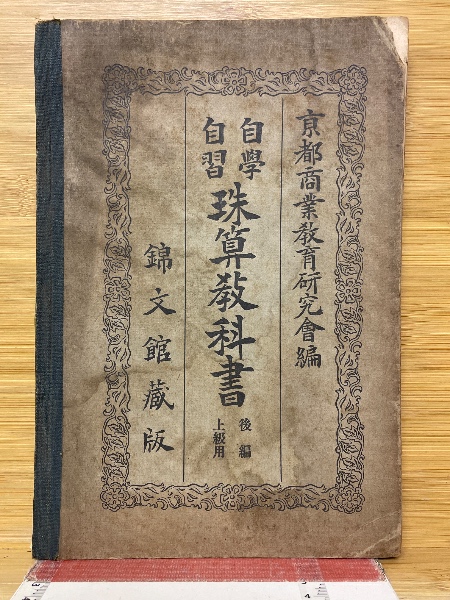 京都商業教育研究會編
自學
自習
珠算教科書
後編
上級用
錦文館藏版